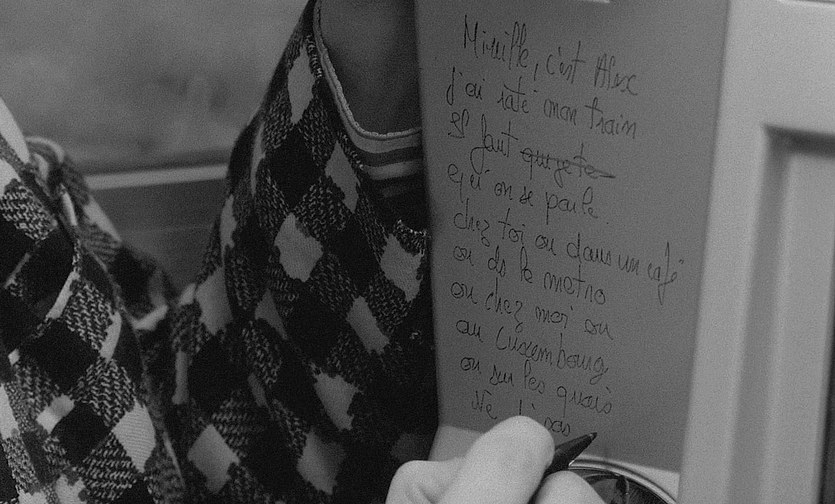 Mireille, c'est Alex
j'ai raté mon train
Il faut que je te
qu'on se parle.
chez toi ou dans un café
ou ds le métro
ou chez moi ou
au Luxembourg
ou sur les quais
Ne